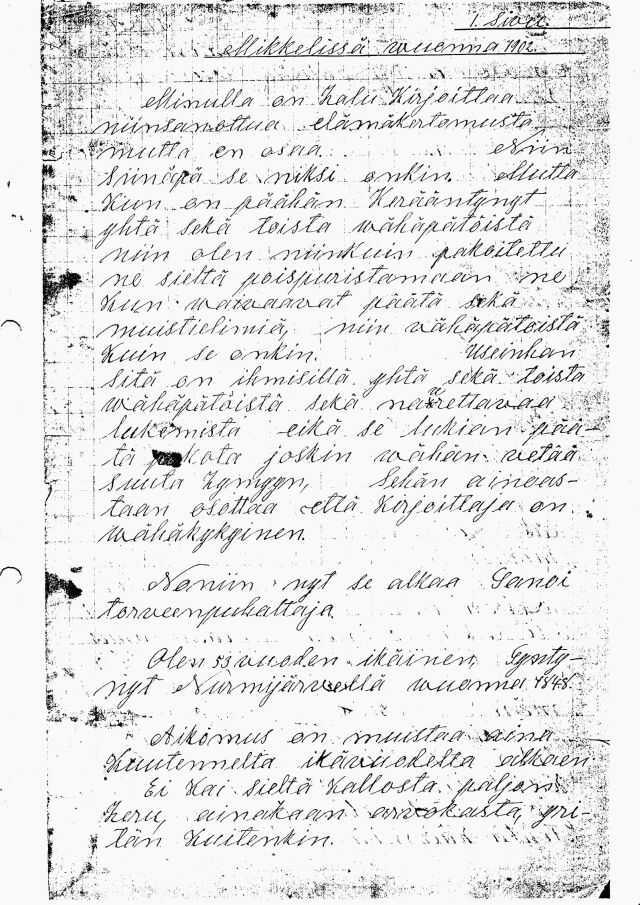 1. Sivu.
Mikkelissä wuonna 1902.
Minulla on halu Kirjoittaa
niinsanottua elämäkertomusta
mutta en osaa. Niin
siinäpä se niksi onkin. Mutta
Kun on päähän Kerääntynyt
yhtä sekä toista wähäpätöistä
niin olen niinkuin pakoitettu
ne sieltä poispuristamaan ne
Kun waivaavat päätä sekä
muistielimiä, niin vähäpätöistä
Kuin se onkin. Useinhan
sitä on ihmisillä yhtä sekä toista
wähäpätöistä sekä naurettavaa
lukemista eikä se lukian pää-
tä pakota joskin wähän vetää
suuta hymyyn, Sehän ainoas-
taan osottaa että Kirjoittaja on
wähäkykyinen.
Noniin nyt se alkaa Sanoi
torveenpuhaltaja.
Olen 53 vuoden ikäinen, Synty-
nyt Nurmijärvellä wuonna 1848.
Aikomus on muistaa aina
Kuutennelta ikävuodelta alkaen
Ei Kai sieltä Kallosta paljon
heru, ainakaan arvokasta, yri-
tän Kuitenkin.